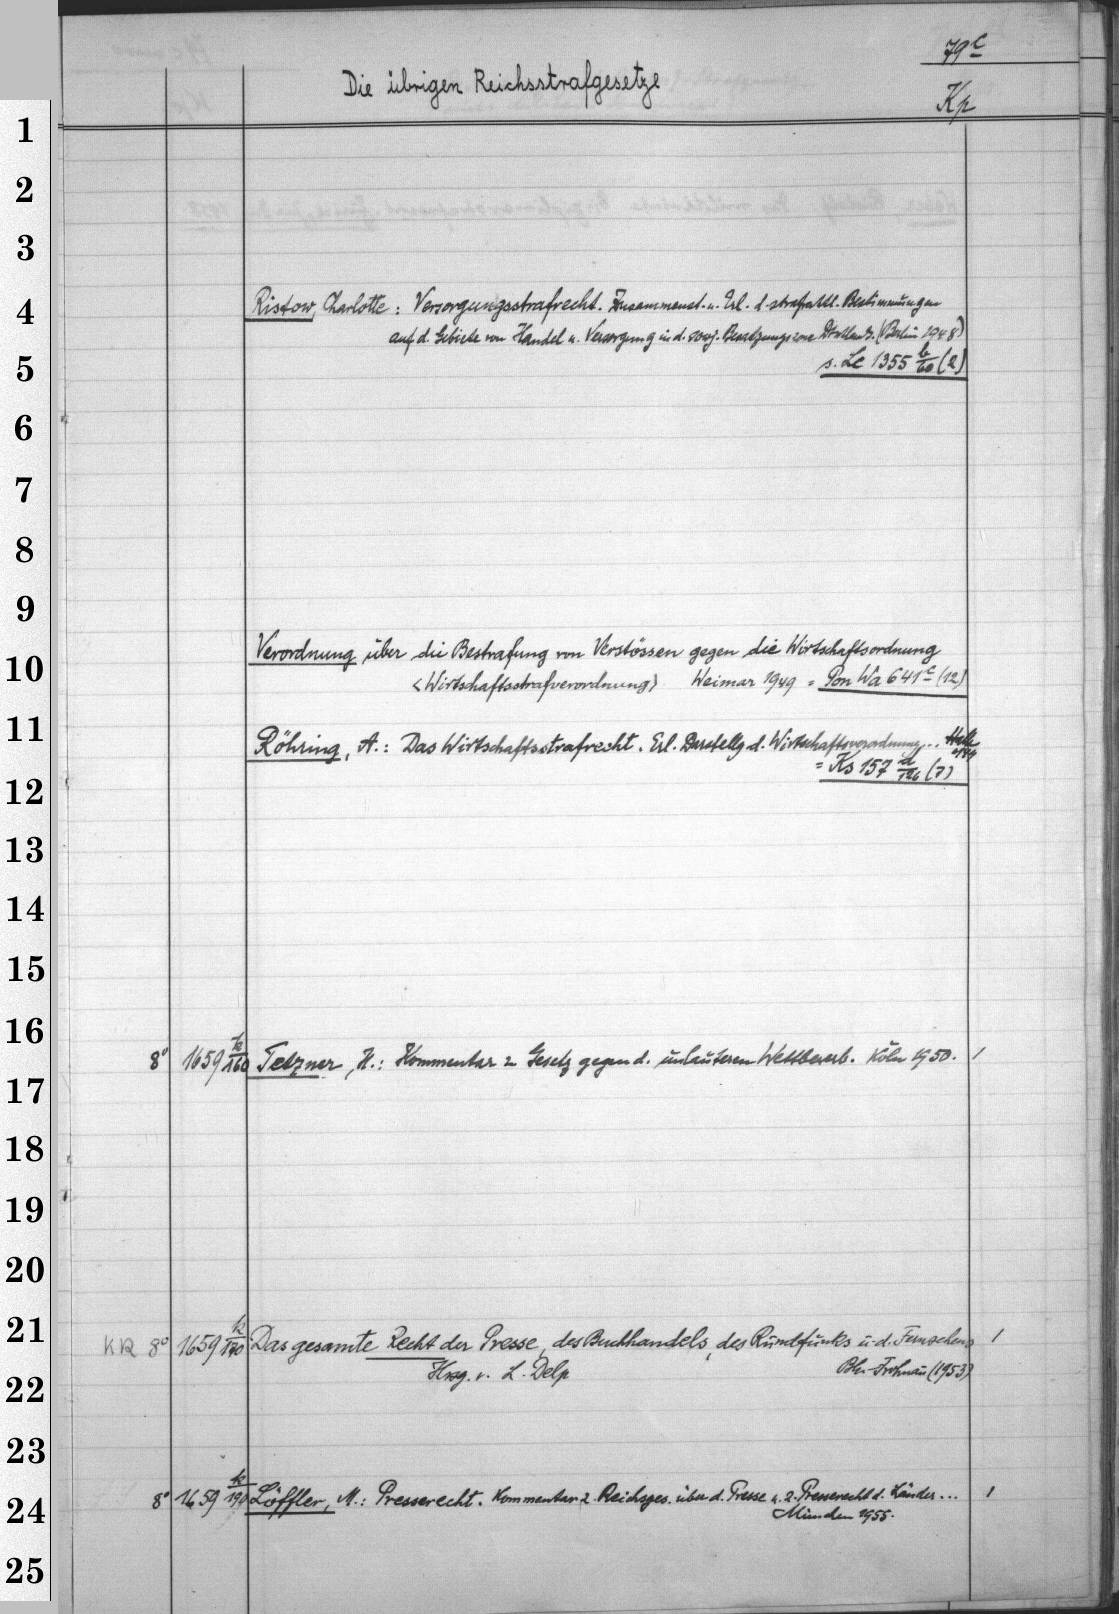 79c
Die übrigen Reichsstrafgesetze
Kp
1
2
3
4
Ristow, Charlotte: Versorgungsstrafrecht. Zusammenst. u. Erl. d. strafrechtl. Bestimmungen
auf d. Gebiete von Handel u. Versorgung in d. sowj. Besatzungszone Dtschlands. (Berlin 1948)
s. Lc 1355 b/60 (2)
5
6
7
8
9
Verordnung über die Bestrafung von Verstössen gegen die Wirtschaftsordnung
10
<Wirtschaftsstrafverordnung> Weimar 1949 = Pon Wa 641c (12)
11
Röhring, A.: Das Wirtschaftsstrafrecht. Erl. Darstellg d. Wirtschaftsverordnung... Halle
1949
= Ks 157 d/126 (7)
12
13
14
15
16
8° 1659 k/160 Tetzner, H.: Kommentar z. Gesetz gegen d. unlauteren Wettbewerb. Köln 1950. 1
17
18
19
20
21
KR 8° 1659 k/170 Das gesamte Recht der Presse, des Buchhandels, des Rundfunks u. d. Fernsehens 1
Hrsg. v. L. Delp Bln-Frohnau (1953)
22
23
8° 1659 k/190 Löffler, M.: Presserecht. Kommentar z. Reichsges. über d. Presse u. z. Presserecht d. Länder... 1
24
München 1955.
25